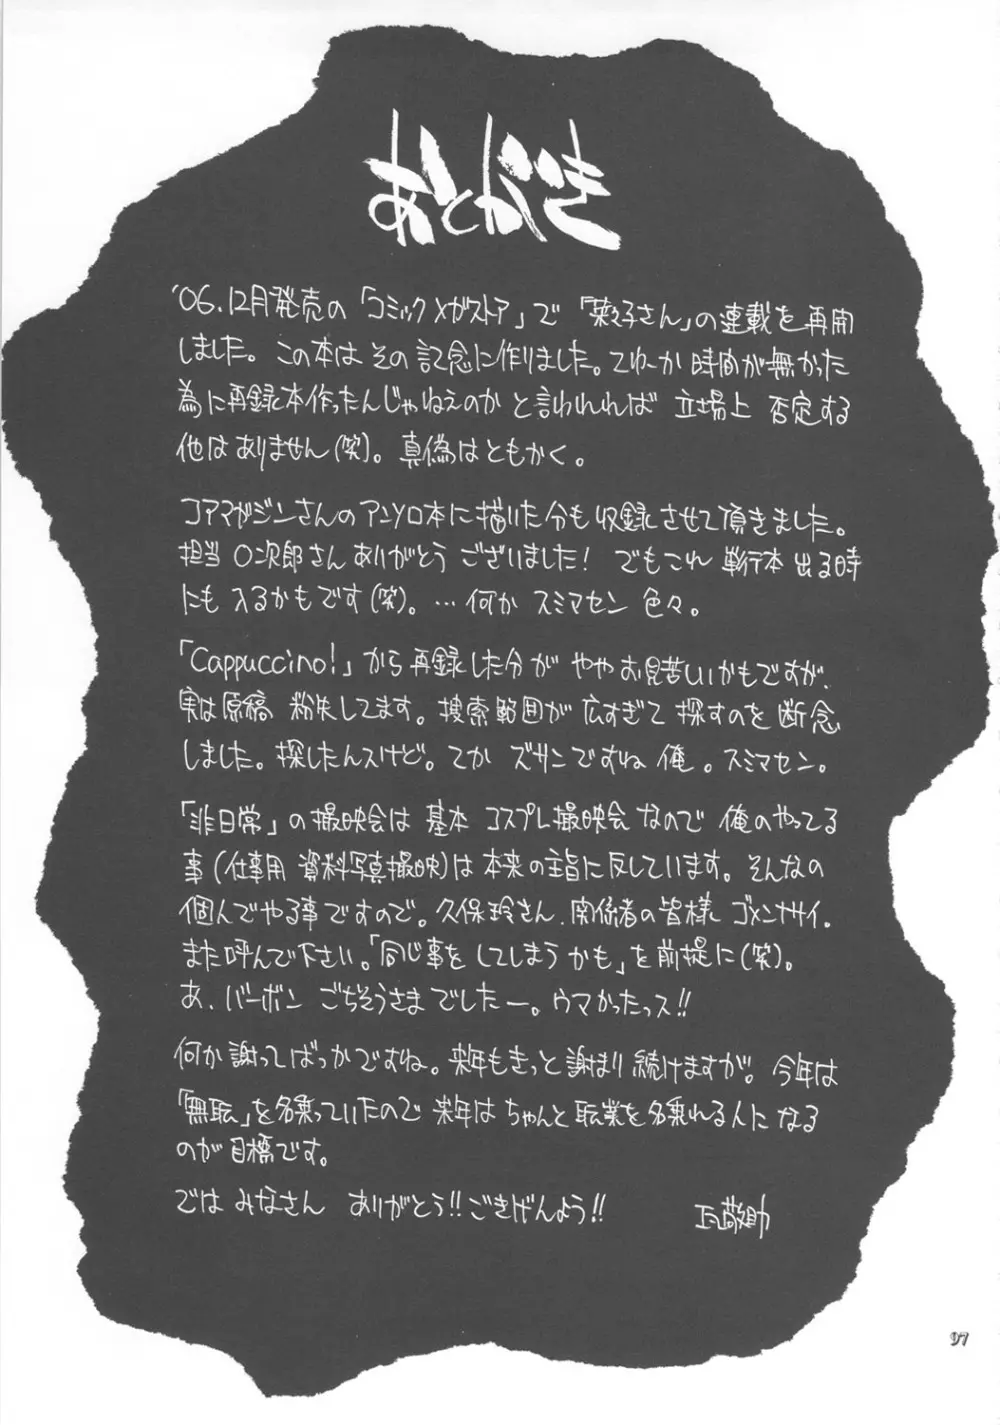 あとがき
'06.12月発売の「コミックメガストア」で「菜々子さん」の連載を再開
しました。この本はその記念に作りました。てゆーか 時間が無かった
為に再録本作ったんじゃねえのか と言われれば 立場上 否定する
他はありません(笑)。真偽はともかく。
コアマガジンさんのアンソロ本に描いた分も収録させて頂きました。
担当〇次郎さんありがとう ございました! でもこれ 単行本 出る時
にも 入るかもです(笑)。…何か スミマセン 色々。
「Cappuccino!」から再録した分が やや お見苦しいかもですが、
実は原稿 紛失してます。捜索範囲が 広すぎて 探すのを 断念
しました。探したんスけど。てか ズサンですね 俺。スミマセン。
「非日常」の撮映会は 基本 コスプレ撮映会 なので 俺のやってる
事(仕事用 資料写真撮映)は 本来の主旨に反しています。そんなの
個人でやる事ですので。久保玲さん、関係者の皆様 ゴメンナサイ。
また呼んで下さい。「同じ事を してしまう かも」を 前提に(笑)。
あ、バーボン ごちそうさま でしたー。ウマかったっス!!
何か 謝ってばっかですね。来年もきっと 謝まり 続けますが。今年は
「無職」を名乗っていたので 来年は ちゃんと 職業を 名乗れる人に なる
のが 目標です。
では みなさん ありがとう!! ごきげんよう!!
97